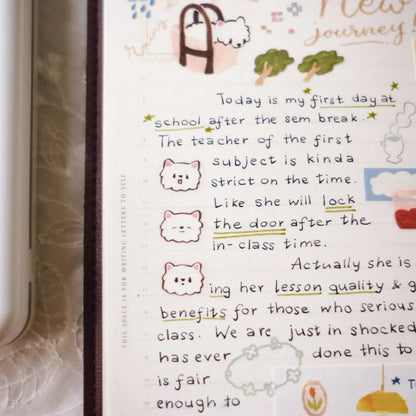 New
journey!
Today is my first day at
school after the sem break.
The teacher of the first
subject is kinda
strict on the time.
Like she will lock
the door after the
in-class time.
Actually she is
ing her lesson quality & g
benefits for those who serious
class. We are just in shocked
has ever done this to
is fair
enough to
THIS SPACE IS FOR WRITING LETTERS TO SELF